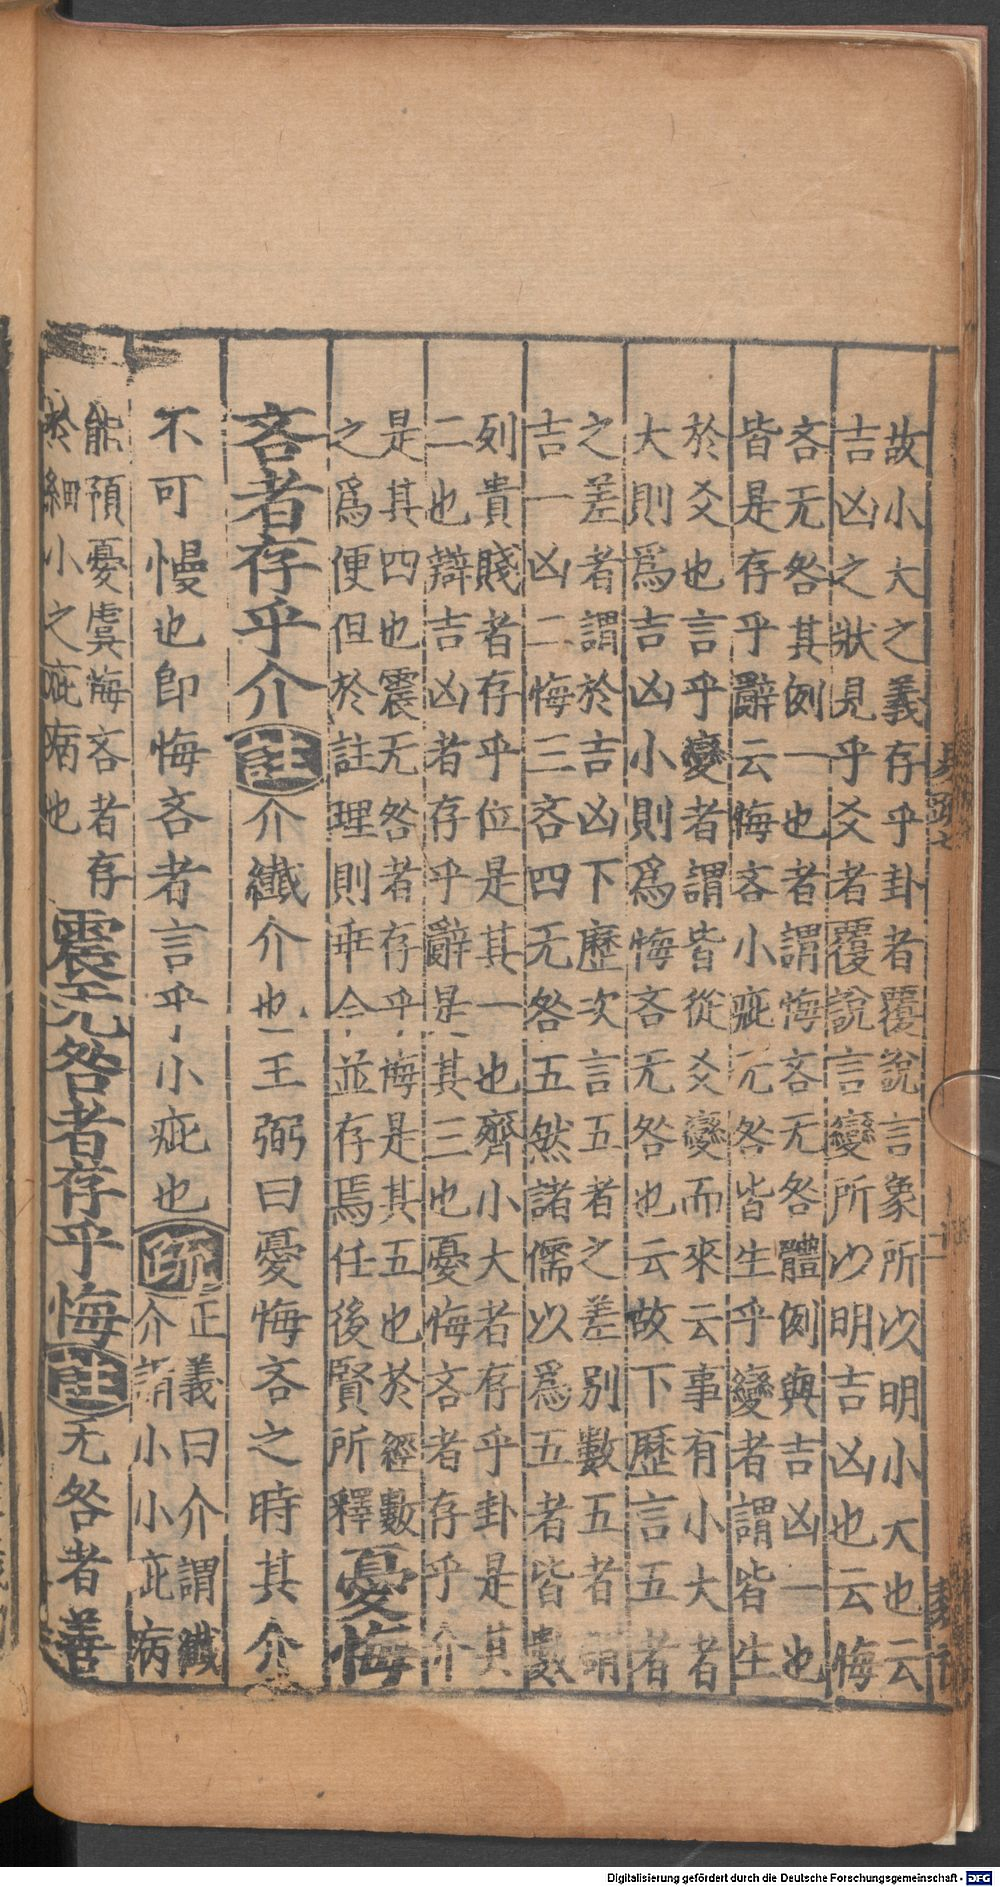 故小大之義存乎卦者覆說言象所以明小大也云
吉凶之狀見乎爻者覆說言變所以明吉凶也云悔
吝无咎其例一也者謂悔吝无咎體例與吉凶一也
皆是存乎辭云悔吝小疵无咎皆生乎變者謂皆生
於爻也言乎變者謂皆從爻變而來云事有小大者
大則爲吉凶小則爲悔吝无咎也云故下歷言五者
之差者謂於吉凶下歷次言五者之差別數五者謂
吉一凶二悔三吝四无咎五然諸儒以爲五者皆數
列貴賤者存乎位是其一也齊小大者存乎卦是其
二也辯吉凶者存乎辭是其三也憂悔吝者存乎介
是其四也震无咎者存乎悔是其五也於經數
之爲便但於註理則乖今並存焉任後賢所釋
憂悔
吝者存乎介
註
介纖介也王弼曰憂悔吝之時其介
不可慢也卽悔吝者言乎小疵也
疏
正義曰介謂纖
介謂小小疵病
能預憂虞悔吝者存
於細小之疵病也
震无咎者存乎悔
註
无咎者善
Digitalisierung gefördert durch die Deutsche Forschungsgemeinschaft - DFG